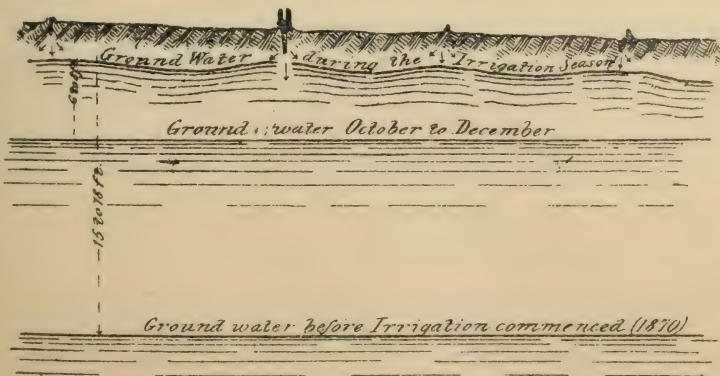 Ground Water during the Irrigation Season
Ground water October to December
15 to 18 ft
Ground water before Irrigation commenced (1870)